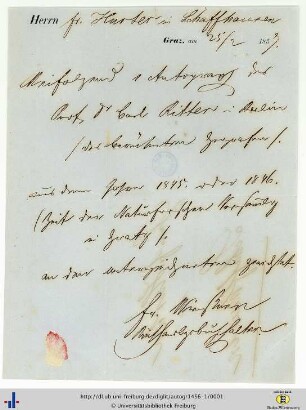 Herrn Fr. Hurter in Schaffhausen
Graz, am 25/2 1859.
Beifolgend 1 Autograph des
Prof. Dr Carl Ritter in Berlin
/ des berühmten Geografen /.
aus dem Jahre 1845. oder 1846.
(Zeit der Naturforscher Versamlg
in Gratz /.
an den unterzeichneten gerichtet.
Fr.
http://dl.ub.uni-freiburg.de/diglit/autogr1456-1/0001
© Universitätsbibliothek Freiburg